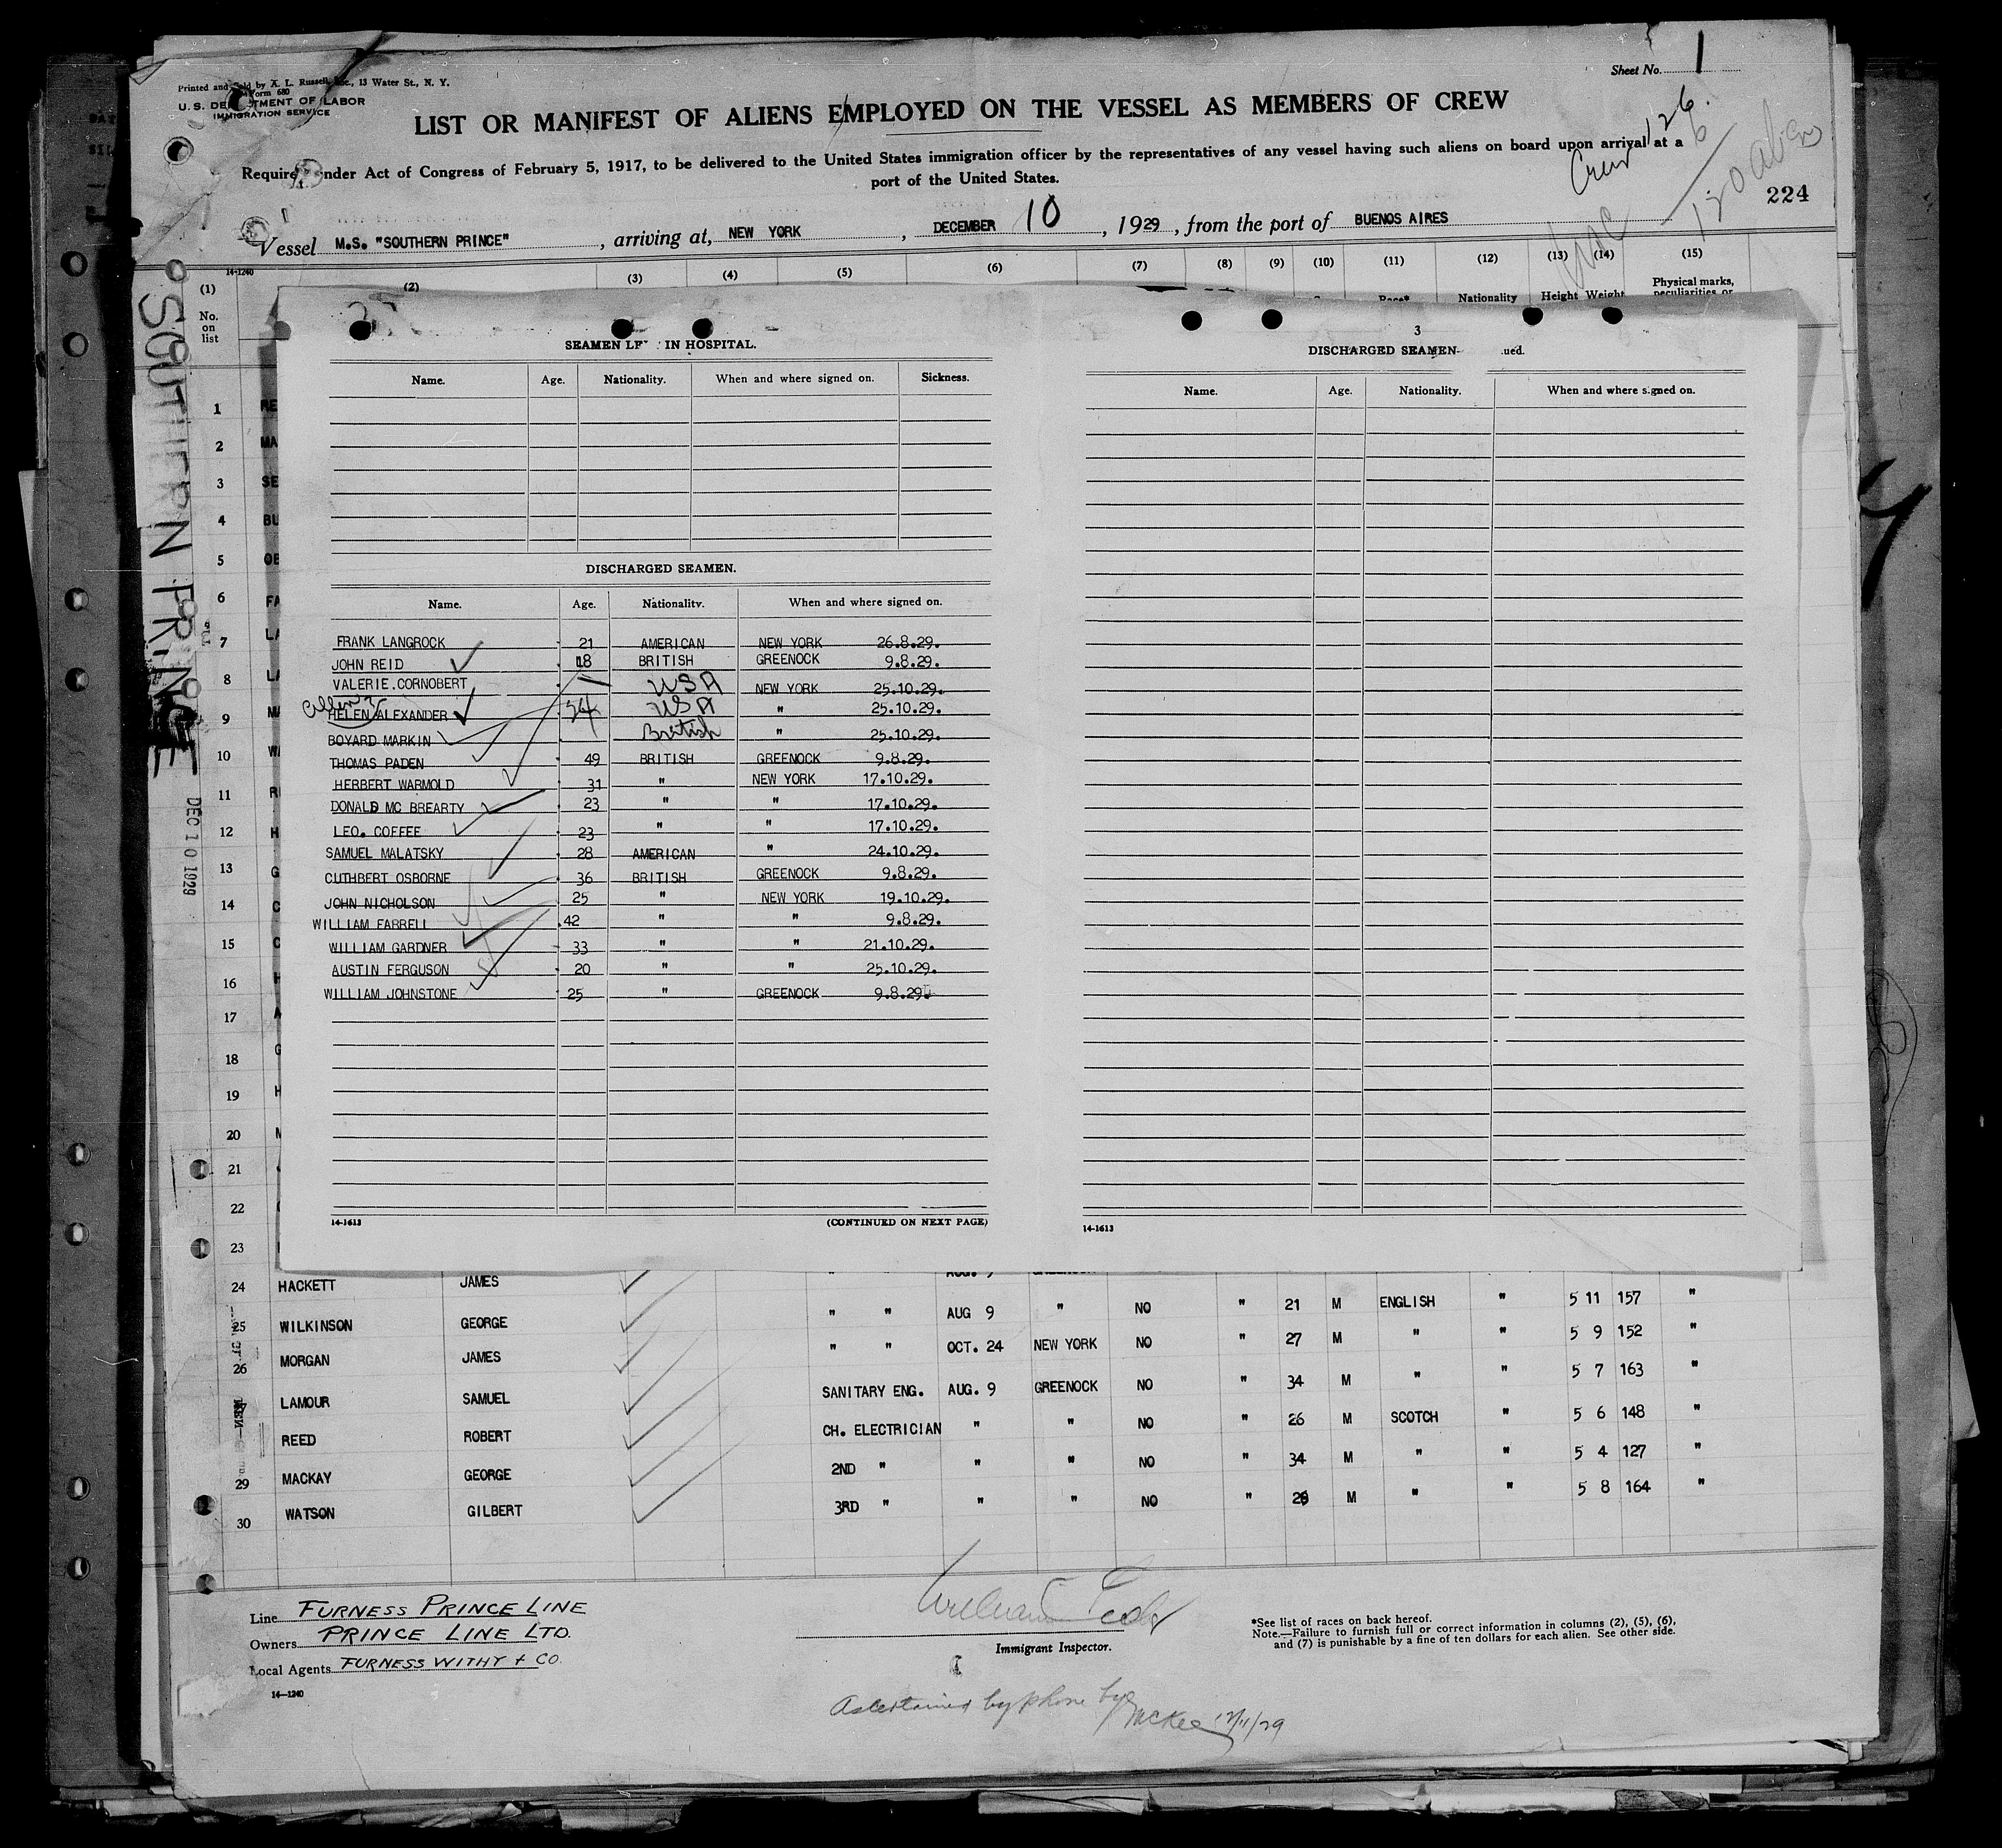 Sheet No. 1
Printed and Sold by A. L. Russell, Inc., 13 Water St., N. Y.
Form 680
U. S. DEPARTMENT OF LABOR
IMMIGRATION SERVICE
LIST OR MANIFEST OF ALIENS EMPLOYED ON THE VESSEL AS MEMBERS OF CREW
Required under Act of Congress of February 5, 1917, to be delivered to the United States immigration officer by the representatives of any vessel having such aliens on board upon arrival at a
port of the United States.
Crew 126
224
Vessel M.S. "SOUTHERN PRINCE", arriving at, NEW YORK, DECEMBER 10, 1929, from the port of BUENOS AIRES
14-1240
(1) (2) (3) (4) (5) (6) (7) (8) (9) (10) (11) (12) (13) (14) (15)
No. on list
Race* Nationality Height Weight Physical marks, peculiarities or
SOUTHERN PRINCE
DEC 10 1929
SEAMEN LEFT IN HOSPITAL.
Name. Age. Nationality. When and where signed on. Sickness.
DISCHARGED SEAMEN.
Name. Age. Nationality. When and where signed on.
FRANK LANGROCK 21 AMERICAN NEW YORK 26.8.29.
JOHN REID 18 BRITISH GREENOCK 9.8.29.
VALERIE.CORNOBERT USA NEW YORK 25.10.29.
HELEN ALEXANDER USA " 25.10.29.
BOYARD MARKIN British " 25.10.29.
THOMAS PADEN 49 BRITISH GREENOCK 9.8.29.
HERBERT WARMOLD 31 " NEW YORK 17.10.29.
DONALD MC BREARTY 23 " " 17.10.29.
LEO. COFFEE 23 " " 17.10.29.
SAMUEL MALATSKY 28 AMERICAN " 24.10.29.
CUTHBERT OSBORNE 36 BRITISH GREENOCK 9.8.29.
JOHN NICHOLSON 25 " NEW YORK 19.10.29.
WILLIAM FARRELL 42 " " 9.8.29.
WILLIAM GARDNER 33 " " 21.10.29.
AUSTIN FERGUSON 20 " " 25.10.29.
WILLIAM JOHNSTONE 25 " GREENOCK 9.8.29.
14-1613 (CONTINUED ON NEXT PAGE)
3
DISCHARGED SEAMEN- ued.
Name. Age. Nationality. When and where signed on.
14-1613
1 RE
2 MA
3 SE
4 BU
5 OE
6 FA
7 LA
8 LA
9 M
10 W
11 R
12 H
13 G
14 C
15 C
16 H
17 A
18 G
19 H
20 M
21
22
23
24 HACKETT JAMES " " AUG. 9 GREENOCK
25 WILKINSON GEORGE " " AUG 9 " NO " 21 M ENGLISH " 5 11 157 "
26 MORGAN JAMES " " OCT. 24 NEW YORK NO " 27 M " " 5 9 152 "
LAMOUR SAMUEL SANITARY ENG. AUG. 9 GREENOCK NO " 34 M " " 5 7 163 "
REED ROBERT CH. ELECTRICIAN " " NO " 26 M SCOTCH " 5 6 148 "
29 MACKAY GEORGE 2ND " " " NO " 34 M " " 5 4 127 "
30 WATSON GILBERT 3RD " " " NO " M " " 5 8 164 "
Line FURNESS PRINCE LINE
Owners PRINCE LINE LTD.
Local Agents FURNESS WITHY + CO.
14-1240
William
Immigrant Inspector.
*See list of races on back hereof.
Note.—Failure to furnish full or correct information in columns (2), (5), (6),
and (7) is punishable by a fine of ten dollars for each alien. See other side.
Ascertained by phone by McKee 12/11/29